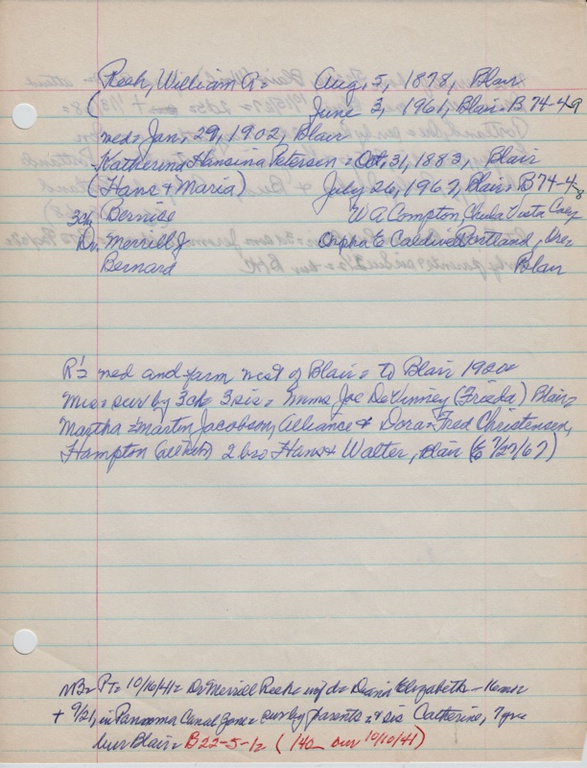 Reeh, William R= Aug, 5, 1878, Blair
( June 3, 1961, Blair= B 74-49
med= Jan, 29, 1902, Blair
Katherina Hansina Petersen = Oct, 31, 1883, Blair
(Hans + Maria) July 26, 1967, Blair= B74-4-8
3ch, Bernise W A Compton, Chula Vista Calif
Dr. Merrill J Orpha E Caldwell Portland, Ore=
Bernard Blair
R's= med and farm west of Blair= to Blair 1920=
Mrs= sur by 3ch= 3 sis= Mmes Joe DeVinney (Frieda) Blair=
Martha = Marton Jacobson, Alliance + Dora= Fred Christensen,
Hampton 2 bro Hans+ Walter, Blair (E 7/27/67)
NB= PT= 10/16/41= Dr Merrill Reeh= inf d= Diana Elizabeth -
+ 9/21, in Panama Canal Zone= sur by parents = + sis Catherine, 7 yr=
bur Blair= B22-5-1/2 (140 our 10/10/41)